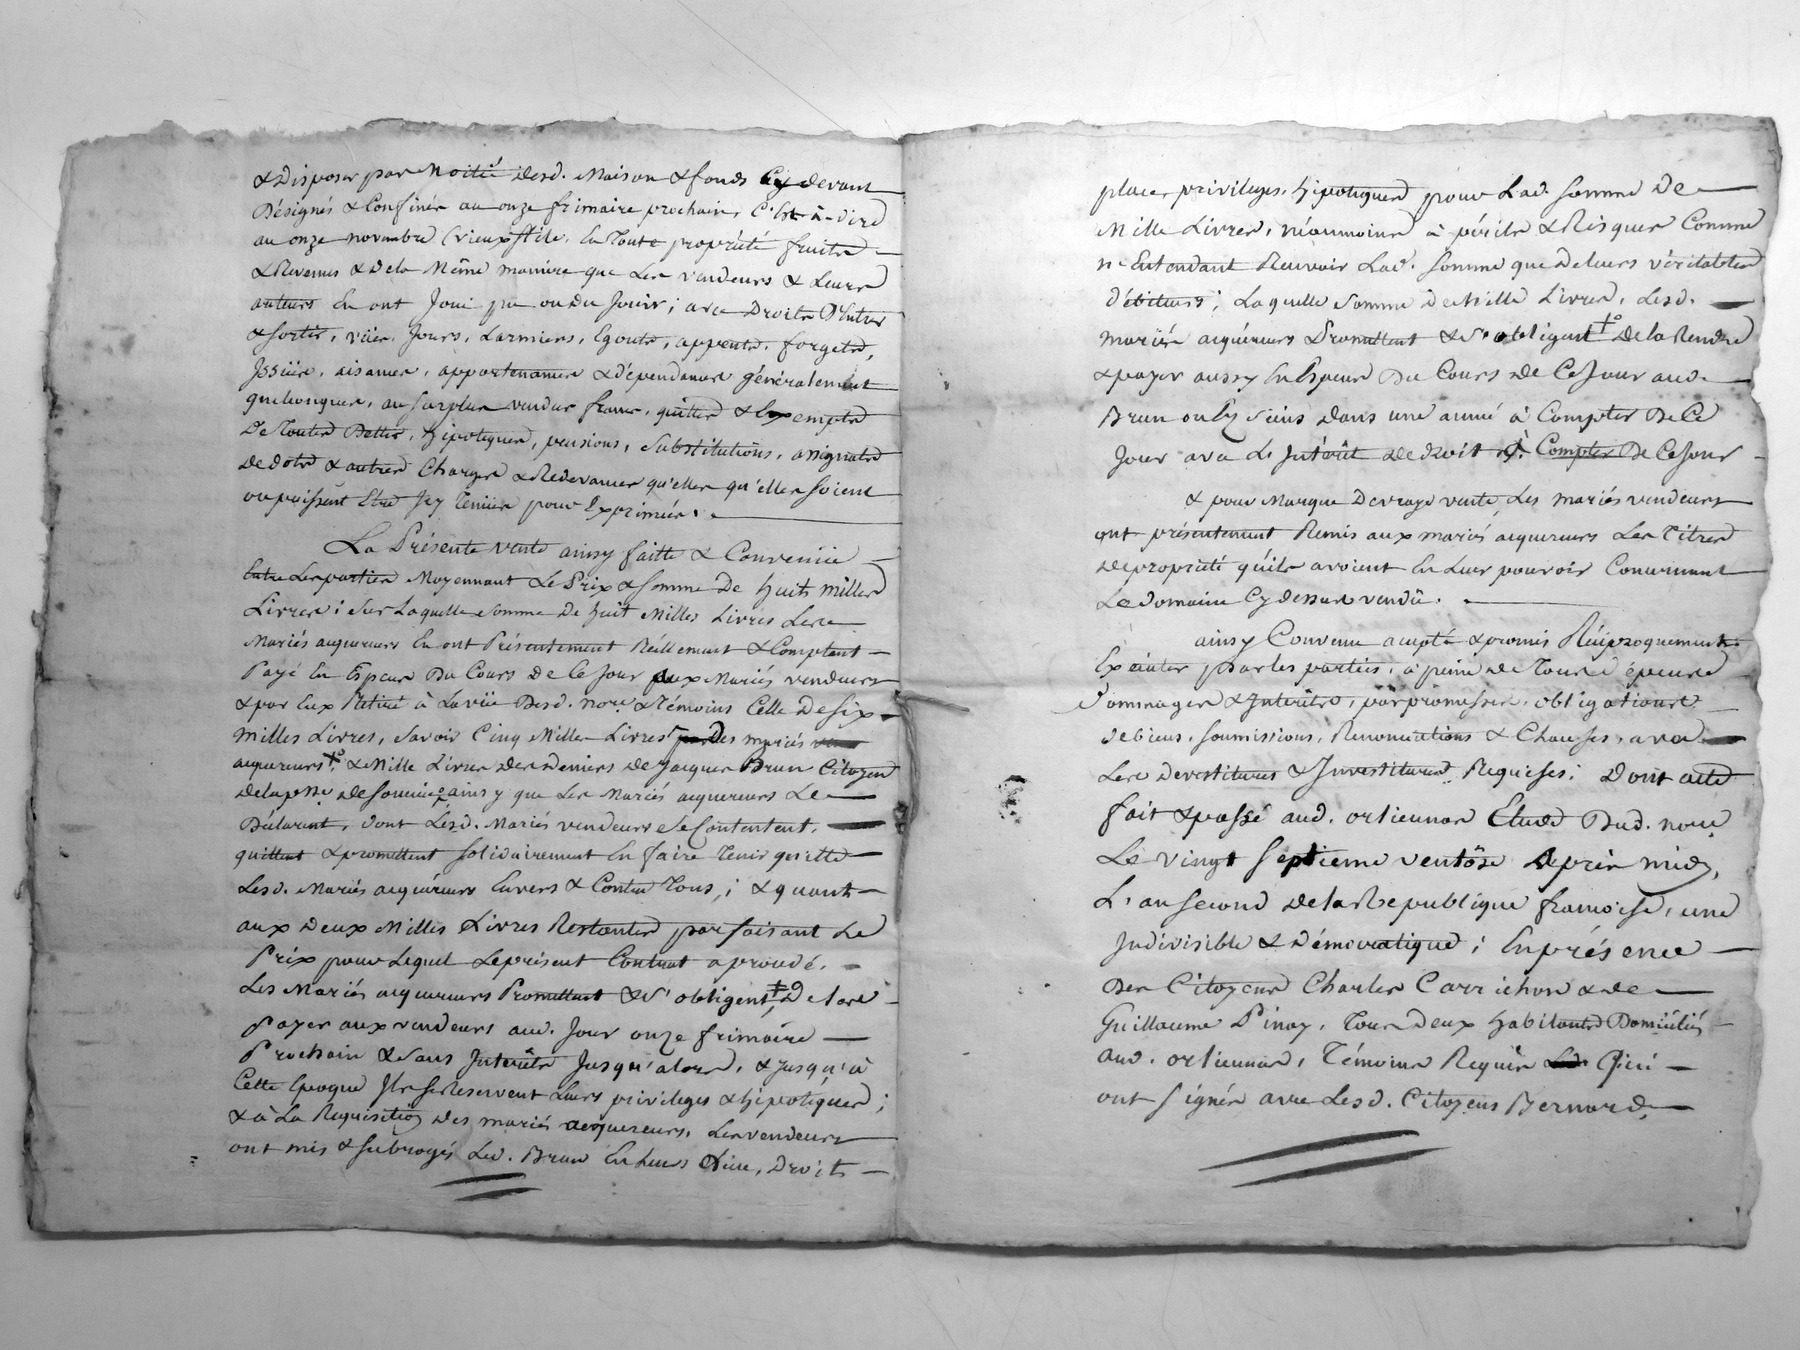 & Disposer par Moitié desd. Maison & fonds Cy devant
Désignés & Confinés au onze frimaire prochain, C'est à-dire
au onze novembre (vieux stile, En Toute propriété fruits
& Revenus & de la Même maniere que Les vendeurs & Leurs
auteurs En ont Joui pu ou du Jouir; avec Droits D'Entrer
& sortir, vües, Jours, Larmiers, Egouts, appents, forgets,
Issües, aisances, appartenances & dépendances généralement
quelconques, au surplus vendus francs, quittes & Exempts
De Toutes Dettes, hipoteques, pensions, substitutions, assignats
de dots & autres Charges & Redevances qu'elles qu'elles soient
ou puissent Etre Icy Tenües pour Exprimées.
La Présente vente ainsy faitte & Convenüe
Entre Les parties Moyennant Le Prix & somme De huits milles
Livres; sur Laquelle somme De huit Milles Livres Les
Mariés acquereurs En ont Présentement Réellement & Comptant
Payé En Especes Du Cours De Ce Jour aux Mariés vendeurs
& par Eux Retiré à La vüe Desd. nore & Témoins Celle De six
milles Livres, savoir Cinq Mille Livres des mariés
acquereurs & Mille Livres des Deniers de Jacques Brun Citoyen
de la psse de ainsy que Les Mariés acquereurs Le
Déclarent, dont Lesd. Mariés vendeurs se Contentent,
quittent & promettent solidairement En faire Tenir quitte
Lesd. Mariés acquéreurs Envers & Contre Tous; & quant
aux Deux Milles Livres Restantes parfaisant Le
Prix pour Lequel Le présent Contrat a procédé,
Les Mariés acquereurs Promettent & s'obligent De les
Payer aux vendeurs aud. Jour onze frimaire
Prochain & sans Interêts Jusqu'alors, & Jusqu'à
Cette Epoque Ils se Reservent Leurs privileges & hipoteques;
& à La Requisition des mariés acquereurs, Les vendeurs
ont mis & subrogés Led. Brun En Leurs Lieu, Droits
place, privileges, hipoteques pour Lad. somme De
Mille Livres, néanmoins à périls & Risques Comme
n'Entendant Recevoir Lad. somme que de leurs véritables
débiteurs; Laquelle somme de Mille Livres, Lesd.
mariés acquéreurs Promettent & s'obligent de la Rendre
& payer aussy En Especes Du Cours de Ce Jour aud.
Brun ou Es siens dans une année à Compter De Ce
Jour avec Le Intérêt de droit à Compter De Ce Jour
& pour Marque De vraye vente, Les mariés vendeurs
ont présentement Remis aux mariés acquereurs Les Titres
de propriété qu'ils avoient En Leur pouvoir Concernant
Le domaine Cy dessus vendu.
ainsy Convenu accepté & promis Réciproquement
Exécuter par les parties, à peine de Tous dépens
dommages & Intérêts, par promesses, obligations
de biens, soumissions, Renonciations & Clauses, avec
Les Devestitures & Investitures Requises; Dont acte
fait & passé aud. ortiennas Etude Dud. nore
Le vingt septieme ventôse après midy,
L'an second de la Republique françoise, une
Indivisible & démocratique; En présence
Des Citoyens Charles Carrichon & de
Guillaume Pinay, Tous deux habitants Domiciliés
aud. ortiennas, Témoins Requis Qui
ont signés avec Lesd. Citoyens Bernard,